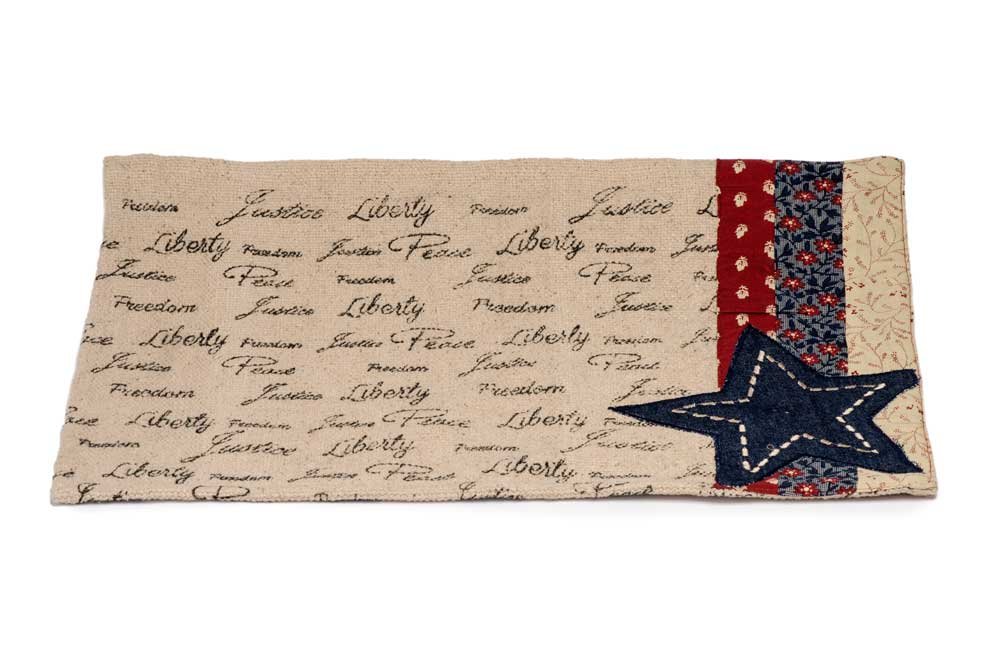 Freedom Justice Liberty Freedom Justice L
ce Liberty Freedom Justice Peace Liberty Freedom Jus
Justice Peace Freedom Justice Peace
Freedom Justice Liberty Freedom Justice
ce Liberty Freedom Justice Peace Liberty Freedom
Justice Peace Freedom Justice Peace
Freedom Justice Liberty Freedom
ce Liberty Freedom Justice Peace Liberty Freedom
Freedom Justice Liberty Freedom Justice
ce Liberty Freedom Justice Peace Liberty Freedom
Justice Peace Freedom Justice Peace